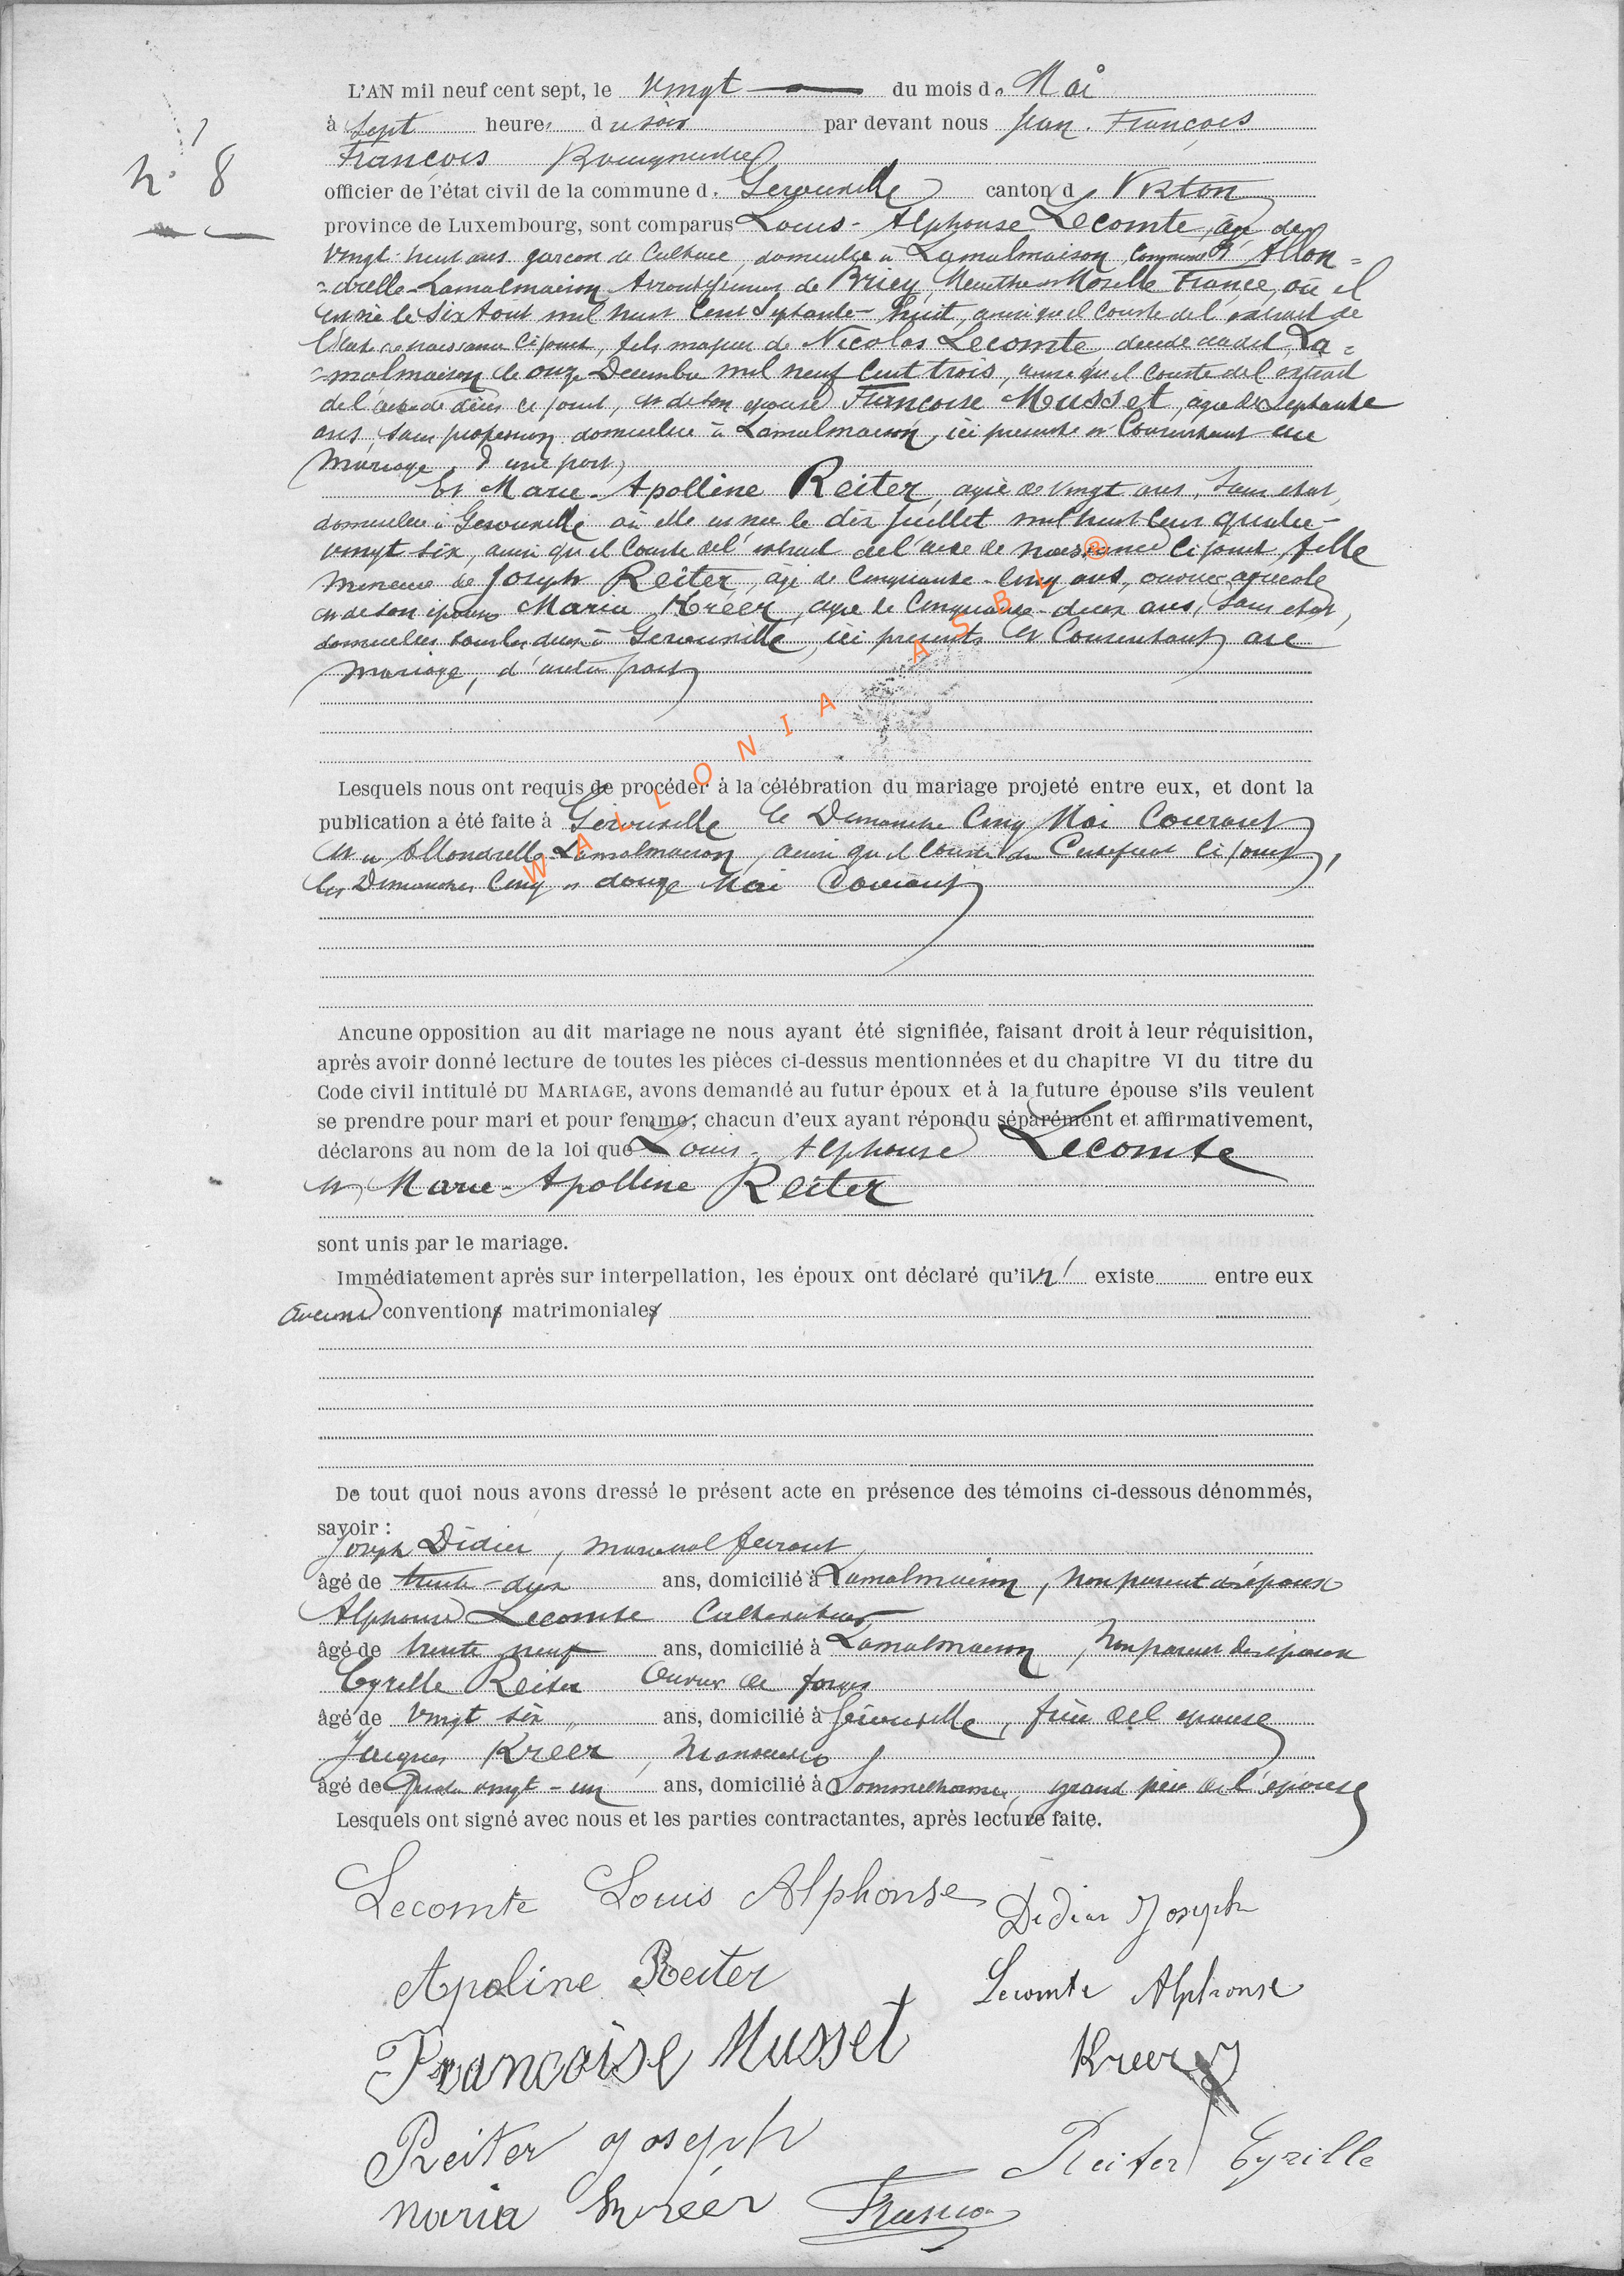 L'AN mil neuf cent sept, le vingt du mois de Mai
à Sept heures du soir par devant nous Jean François
N° 8
François
officier de l'état civil de la commune d. Gerouville canton d Virton
province de Luxembourg, sont comparus Louis-Alphonse Lecomte, âgé de
vingt huit ans, garçon de Culture, domicilié à Lamalmaison Commune d'Allon=
=drelle-Lamalmaison Arrondissement de Briey, Meurthe et Moselle France, où il
est né le Six Août mil huit Cent Septante-huit, ainsi qu'il Conste de l'extrait de
l'acte de naissance Ci joint, fils majeur de Nicolas Lecomte, décédé audit La=
=malmaison le onze Decembre mil neuf Cent trois, ainsi qu'il Conste de l'extrait
de l'acte de décès Ci joint, et de son épouse Francoise Musset, agée de Septante
ans, Sans profession domiciliée à Lamalmaison, ici présente et Consentant au
Mariage, d'une part,
Et Marie-Apolline Reiter, agée de vingt ans, Sans état,
domiciliée à Gerouville où elle est née le dix Juillet mil huit Cent quatre-
vingt six, ainsi qu'il Conste de l'extrait de l'acte de naissance Ci joint, fille
mineure de Joseph Reiter, âgé de Cinquante-Cinq ans, ouvrier agricole
et de son épouse Maria Kréer, agée de Cinquante-deux ans, Sans état,
domiciliés tous les deux à Gerouville, ici présents et Consentant au
Mariage, d'autre part
WALLONIA ASBL ®
Lesquels nous ont requis de procéder à la célébration du mariage projeté entre eux, et dont la
publication a été faite à Gérouville le Dimanche Cinq Mai Courant
et à Allondrelle-Lamalmaison, ainsi qu'il Conste du Certificat Ci joint,
les Dimanches Cinq et douze Mai Courant
Aucune opposition au dit mariage ne nous ayant été signifiée, faisant droit à leur réquisition,
après avoir donné lecture de toutes les pièces ci-dessus mentionnées et du chapitre VI du titre du
Code civil intitulé DU MARIAGE, avons demandé au futur époux et à la future épouse s'ils veulent
se prendre pour mari et pour femme; chacun d'eux ayant répondu séparément et affirmativement,
déclarons au nom de la loi que Louis-Alphonse Lecomte
et Marie-Apolline Reiter
sont unis par le mariage.
Immédiatement après sur interpellation, les époux ont déclaré qu'il n' existe entre eux
aucune conventions matrimoniales
De tout quoi nous avons dressé le présent acte en présence des témoins ci-dessous dénommés,
savoir :
Joseph Didier, marechal ferrant,
âgé de trente-dex ans, domicilié à Lamalmaison, non parent des époux
Alphonse Lecomte Cultivateur
âgé de trente neuf ans, domicilié à Lamalmaison, Non parent des époux
Cyrille Reiter Ouvrier de forges
âgé de vingt six ans, domicilié à Gérouville, frère de l'épouse
Jacques Kréer,
âgé de Quatre vingt-un ans, domicilié à Sommethonne, grand père de l'épouse
Lesquels ont signé avec nous et les parties contractantes, après lecture faite.
Lecomte Louis Alphonse
Didier Joseph
Apoline Reiter
Lecomte Alphonse
Francoise Musset
Kreer J
Reiter Joseph
Reiter Cyrille
Maria Kréer
François